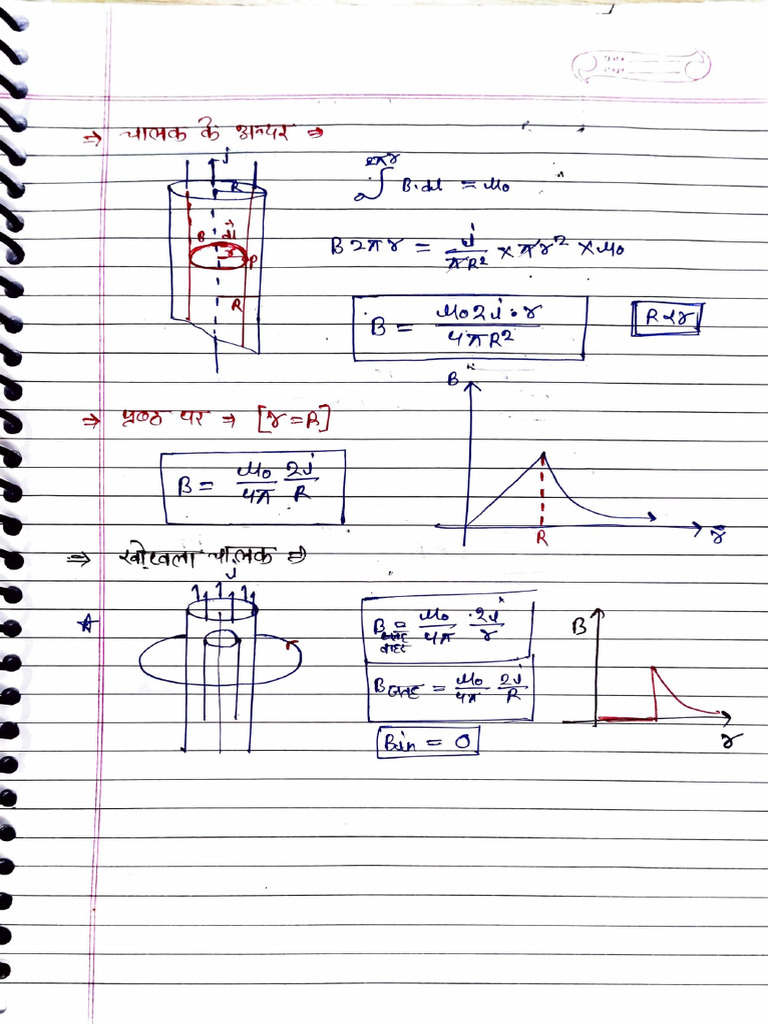 ⇒ चालक के अन्दर ⇒
i
R
∫₀^2πr B.dl = μ₀
B dl
r P
B 2πr = i/πR² × πr² × μ₀
R
B = μ₀ 2i·r / 4πR²
R<r
B
⇒ पृष्ठ पर ⇒ [r = R]
B = μ₀/4π 2i/R
R r
⇒ खोखला चालक ⇒
i
☆
r
B बाहर = μ₀/4π · 2i/r
B
B सतह = μ₀/4π 2i/R
Bin = 0
r